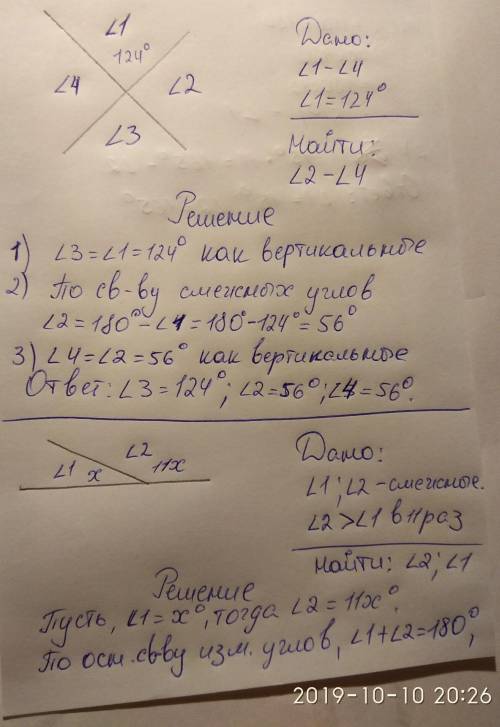 ∠1
124°
∠4
∠2
∠3
Дано:
∠1-∠4
∠1=124°
Найти:
∠2-∠4
Решение
1) ∠3=∠1=124° как вертикальные
2) По св-ву смежных углов
∠2=180°-∠1=180°-124°=56°
3) ∠4=∠2=56° как вертикальные
Ответ: ∠3=124°; ∠2=56°; ∠4=56°.
∠1 x
∠2
11x
Дано:
∠1; ∠2 -смежные.
∠2>∠1 в 11 раз
Найти: ∠2; ∠1
Решение
Пусть, ∠1=x°, тогда ∠2=11x°.
По осн. св-ву изм. углов, ∠1+∠2=180°,
2019-10-10 20:26